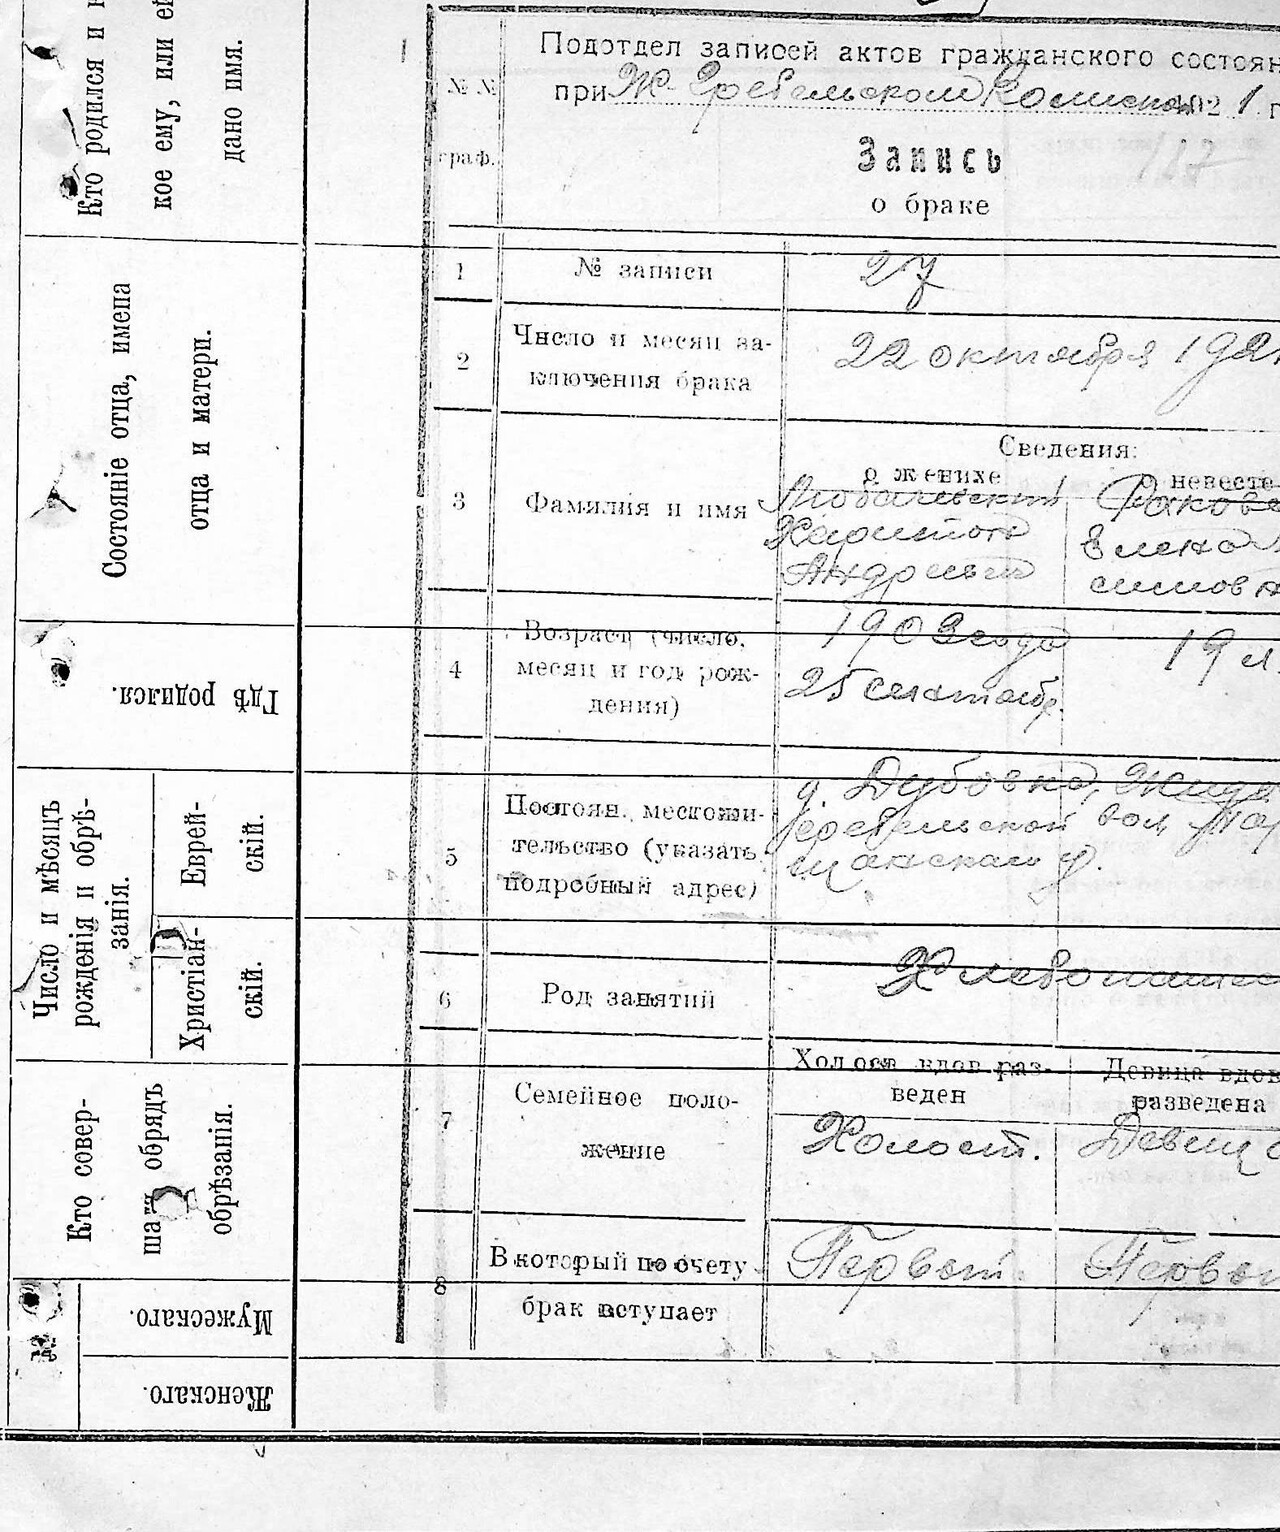 Кто родился и
кое ему, или
дано имя.
Состояніе отца, имена
отца и матери.
Гдѣ родился.
Число и мѣсяцъ
рожденія и обрѣ-
занія.
Еврей-
скій.
Христіан-
скій.
Кто совер-
шалъ обрядъ
обрѣзанія.
Мужескаго.
Женскаго.
Подотдел записей актов гражданского состоян
при Ж-Гребельском 1921 г
№№
граф.
Запись
о браке
117
1 № записи 27
2 Число и месяц за-
ключения брака
22 октября 1921
Сведения:
о женихе о невесте
3 Фамилия и имя
Харитон
Андреев
Елена
4 Возраст (число,
месяц и год рож-
дения)
1903 года
25 сентябр.
19 л
5 Постоян. местожи-
тельство (указать
подробный адрес)
д. Дубовка, Жидо
гребельской вол. Тар
щанского у.
6 Род занятий
Хлебопаше
7 Семейное поло-
жение
Холост вдов раз-
веден
Девица вдов
разведена
Холост. Девица
8 В который по счету
брак вступает
Первый. Первы